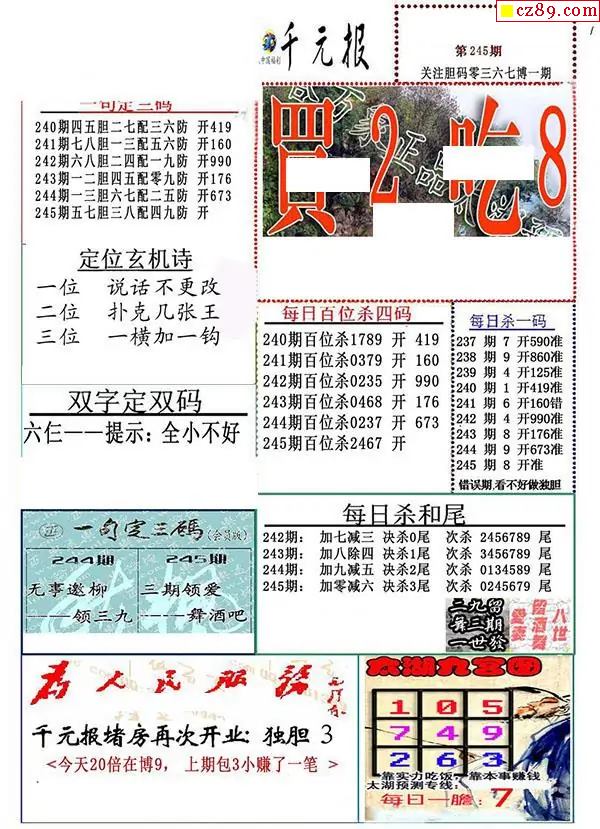 cz89.com
千元报
第245期
关注胆码零三六七博一期
買2吃8
一句定三码
240期四五胆二七配三六防 开419
241期七八胆一三配五六防 开160
242期六八胆二四配一九防 开990
243期一二胆四五配零九防 开176
244期一三胆六七配二五防 开673
245期五七胆三八配四九防 开
定位玄机诗
一位 说话不更改
二位 扑克几张王
三位 一横加一钩
每日百位杀四码
240期百位杀1789 开 419
241期百位杀0379 开 160
242期百位杀0235 开 990
243期百位杀0468 开 176
244期百位杀0237 开 673
245期百位杀2467 开
每日杀一码
237 期 7 开590准
238 期 9 开860准
239 期 4 开125准
240 期 1 开419准
241 期 6 开160错
242 期 4 开990准
243 期 8 开176准
244 期 9 开673准
245 期 8 开准
错误期,看不好做独胆
双字定双码
六仨——提示: 全小不好
每日杀和尾
242期: 加七减三 决杀0尾 次杀 3456789 尾
243期: 加八除四 决杀1尾 次杀 3454689 尾
244期: 加九减五 决杀2尾 次杀 0134589 尾
245期: 加零减六 决杀3尾 次杀 0245679 尾
正 一句定三碼(会员版)
244期 245期
无事邀柳 三期领爱
——领三九 ——舞酒吧
二九留
舞三期
一世發
八世
留酒舞
愛妻
為人民服務
千元报堵房再次开业: 独胆 3
<今天20倍在博9, 上期包3小赚了一笔 >
太湖九宫图
1 0 5
7 4 9
2 6 3
靠实力吃饭, 靠本事赚钱
太湖预测专线:
每日一胆: 7